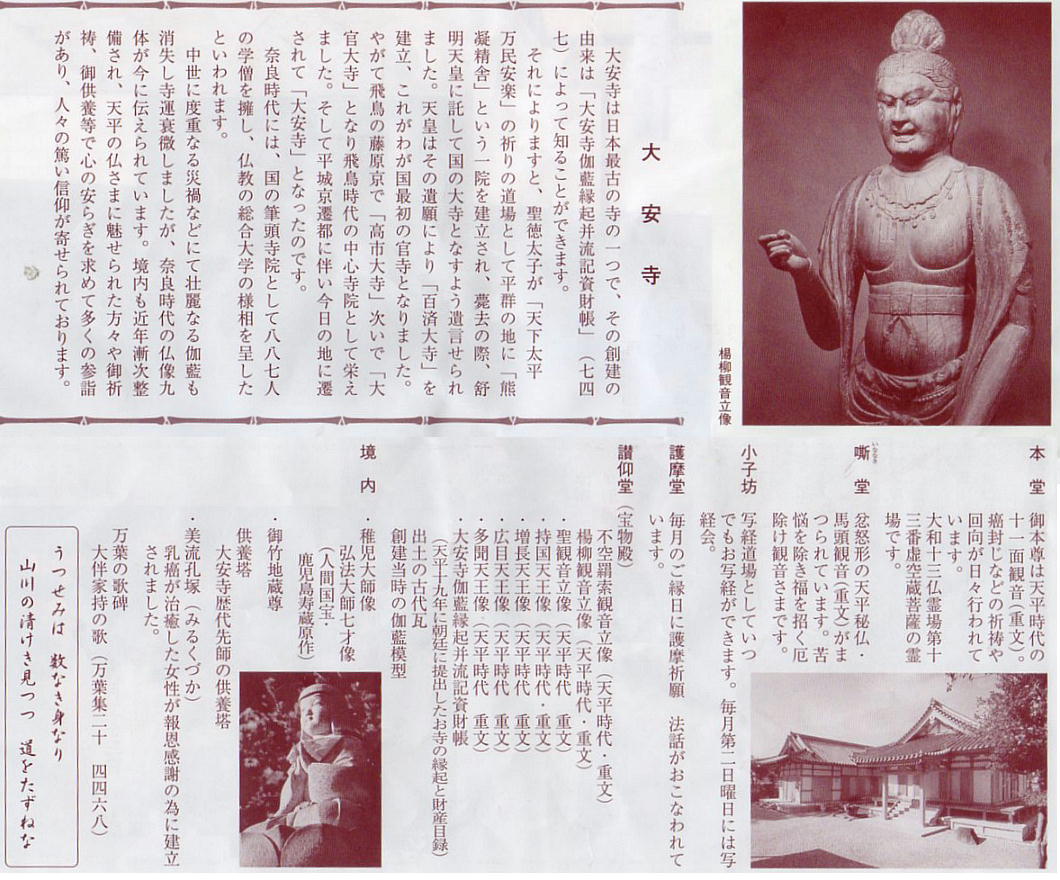 大安寺
大安寺は日本最古の寺の一つで、その創建の
由来は「大安寺伽藍縁起并流記資財帳」（七四
七）によって知ることができます。
それによりますと、聖徳太子が「天下太平
万民安楽」の祈りの道場として平群の地に「熊
凝精舎」という一院を建立され、薨去の際、舒
明天皇に託して国の大寺となすよう遺言せられ
ました。天皇はその遺願により「百済大寺」を
建立、これがわが国最初の官寺となりました。
やがて飛鳥の藤原京で「高市大寺」次いで「大
官大寺」となり飛鳥時代の中心寺院として栄え
ました。そして平城京遷都に伴い今日の地に遷
されて「大安寺」となったのです。
奈良時代には、国の筆頭寺院として八八七人
の学僧を擁し、仏教の総合大学の様相を呈した
といわれます。
中世に度重なる災禍などにて壮麗なる伽藍も
消失し寺運衰微しましたが、奈良時代の仏像九
体が今に伝えられています。境内も近年漸次整
備され、天平の仏さまに魅せられた方々や御祈
祷、御供養等で心の安らぎを求めて多くの参詣
があり、人々の篤い信仰が寄せられております。
楊柳観音立像
本堂
御本尊は天平時代の
十一面観音（重文）。
癌封じなどの祈祷や
回向が日々行われて
います。
大和十三仏霊場第十
三番虚空蔵菩薩の霊
場です。
嘶堂
いななき
忿怒形の天平秘仏・
馬頭観音（重文）がま
つられています。苦
悩を除き福を招く厄
除け観音さまです。
小子坊
写経道場としていつ
でもお写経ができます。毎月第二日曜日には写
経会。
護摩堂
毎月のご縁日に護摩祈願　法話がおこなわれて
います。
讃仰堂（宝物殿）
不空羂索観音立像（天平時代・重文）
楊柳観音立像（天平時代・重文）
・聖観音立像（天平時代　重文）
・持国天王像（天平時代・重文）
・増長天王像（天平時代　重文）
・広目天王像（天平時代　重文）
・多聞天王像（天平時代　重文）
・大安寺伽藍縁起并流記資財帳
（天平十九年に朝廷に提出したお寺の縁起と財産目録）
出土の古代瓦
創建当時の伽藍模型
境内
・稚児大師像
弘法大師七才像
（人間国宝・
鹿児島寿蔵原作）
・御竹地蔵尊
供養塔
大安寺歴代先師の供養塔
・美流孔塚（みるくづか）
乳癌が治癒した女性が報恩感謝の為に建立
されました。
万葉の歌碑
大伴家持の歌（万葉集二十　四四六八）
うつせみは　数なき身なり
山川の清けき見つつ　道をたずねな